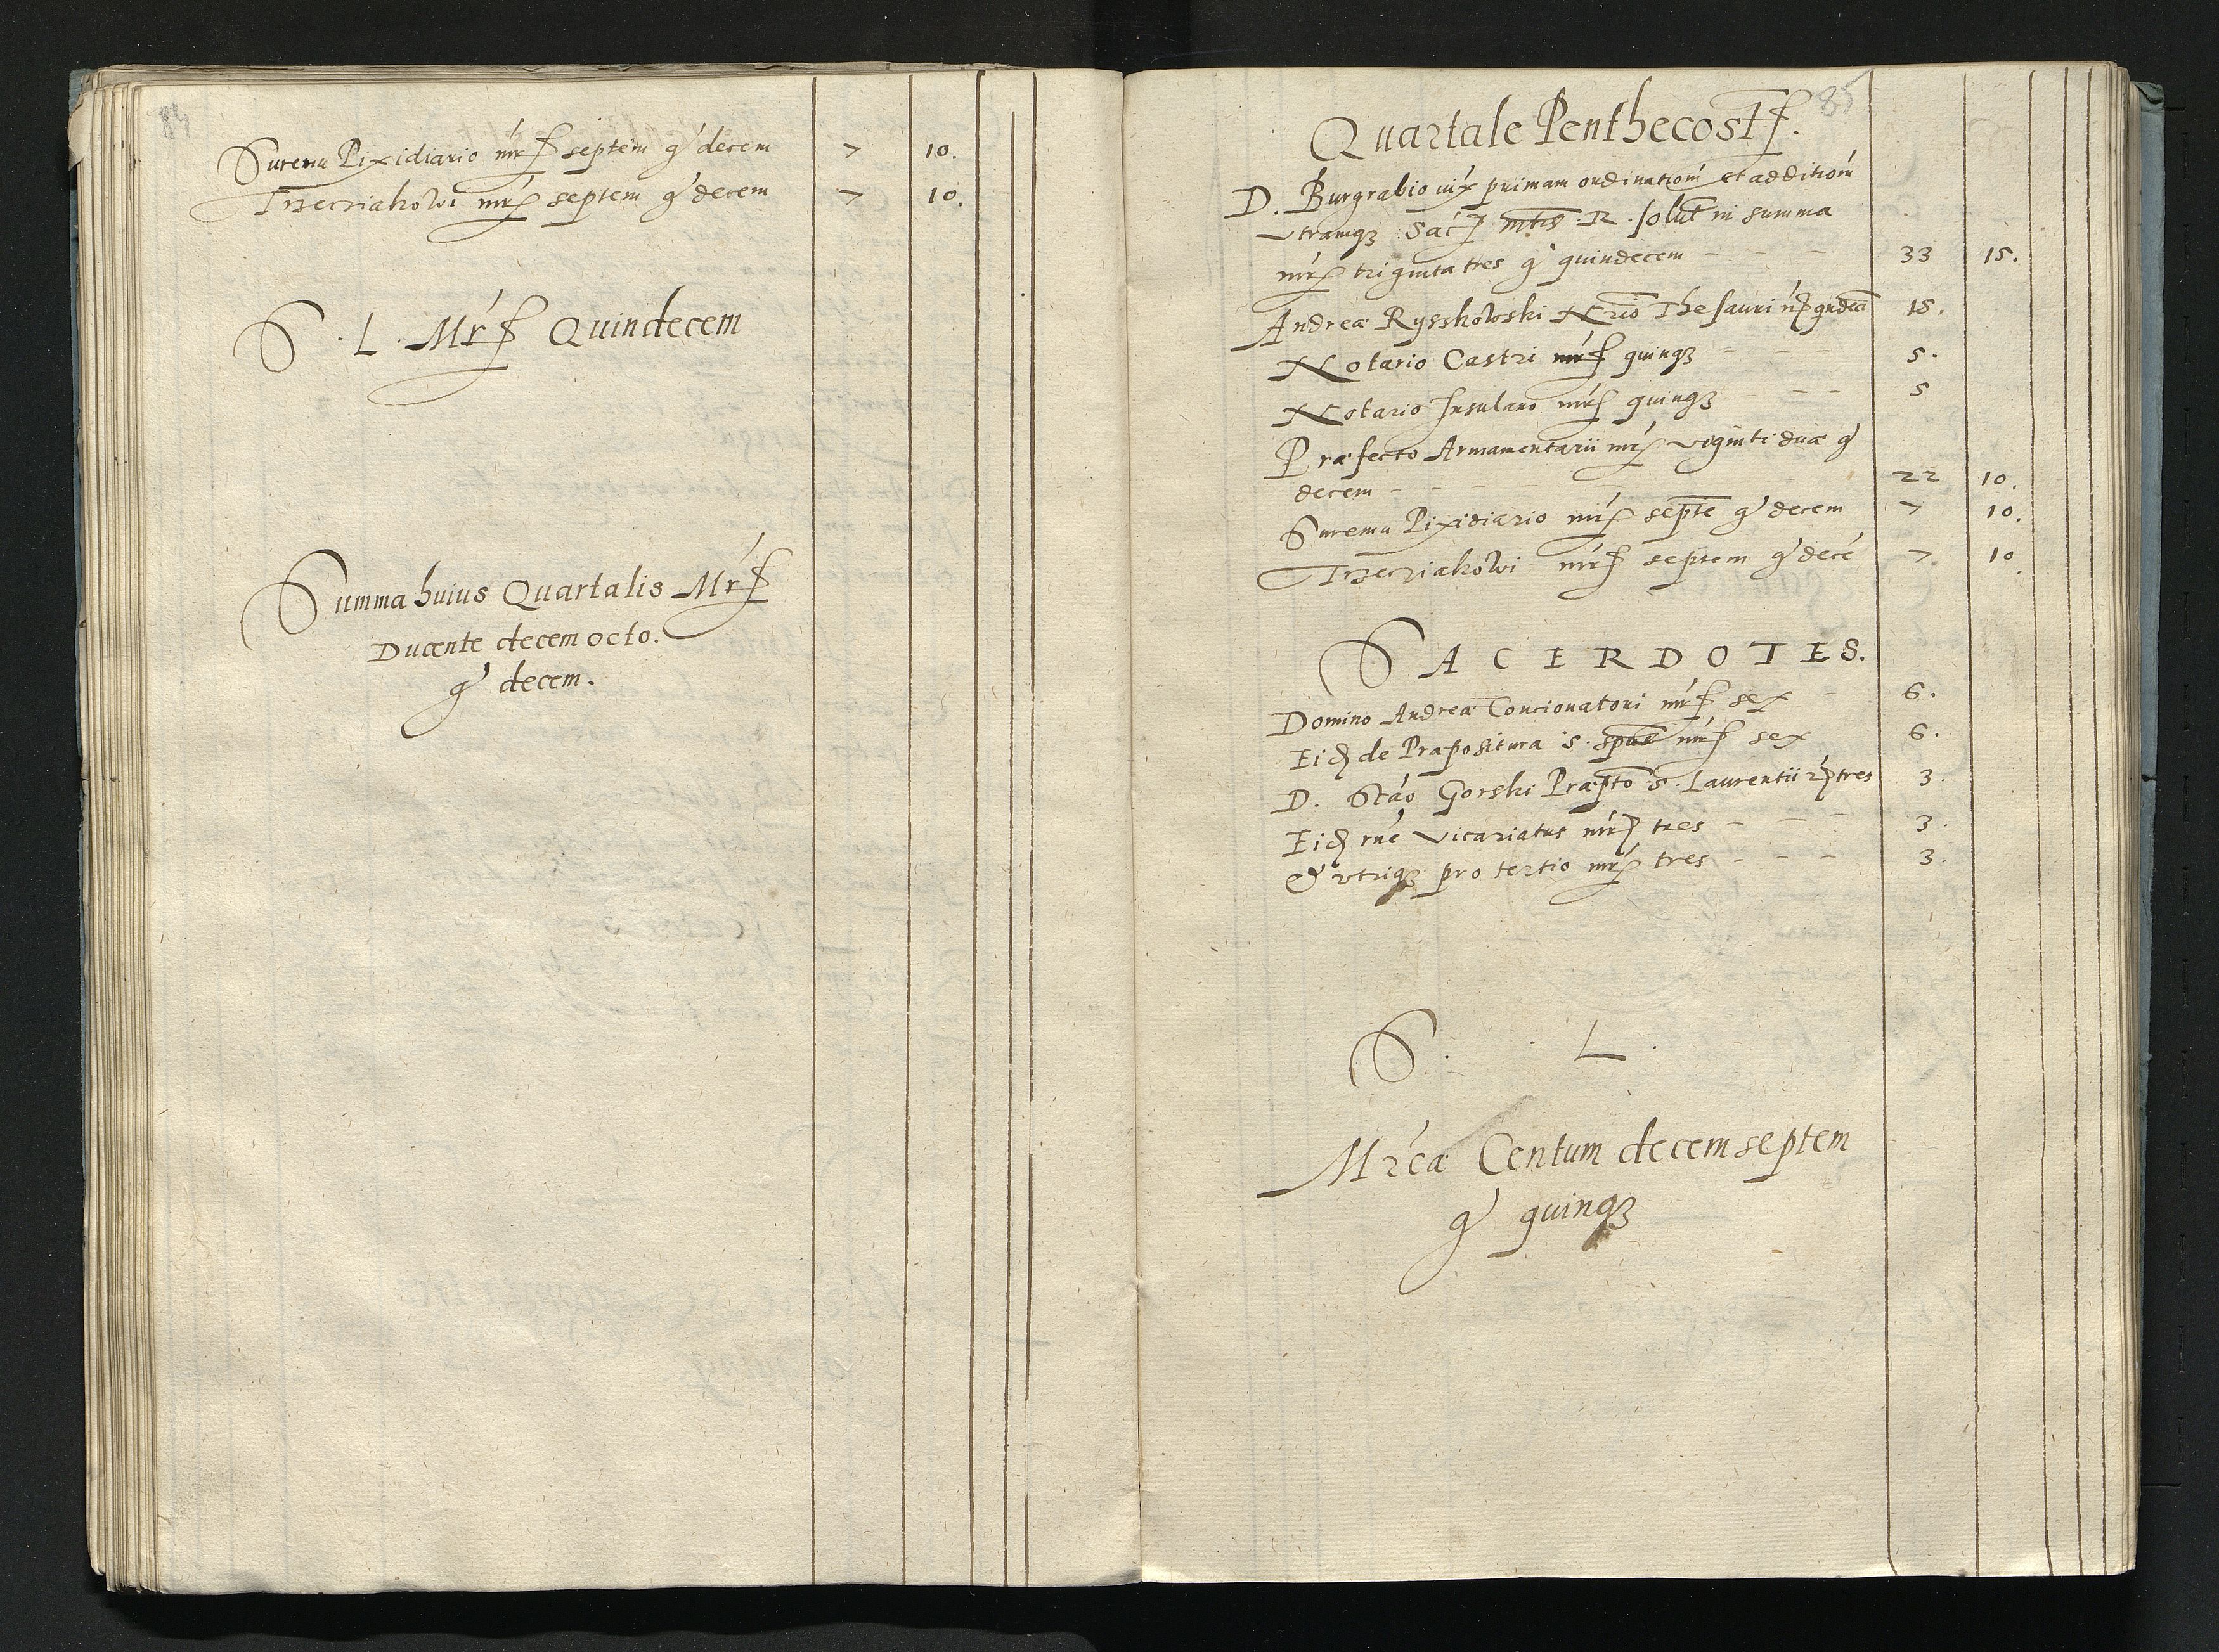 84
Surema Pixidiario mrc septem g decem 7 10.
Trzecziakowi mrc septem g decem 7 10.
S. L. Mrc Quindecem
Summa huius Quartalis Mrc
Ducente decem octo.
g decem.
85
Quartale Penthecost.
D. Burgrabio iux primam ordination et addition
vtramqз Sac mtis R. solut in summa
mrc triginta tres g quindecem - - - 33 15.
Andreæ Rysskowski Nrio Thesauri 15.
Notario Castri mrc quinqз - - - 5.
Notario Insulano mrc quinqз - - 5
Præfecto Armamentarii mrc viginti duæ g
decem - - - 22 10.
Surema Pixidiario mrc septe g decem 7 10.
Trzecziakowi mrc septem g decé 7. 10.
SACERDOTES.
Domino Andreæ Concionatori mrc sex - 6.
Eid de Præpositura S. spus mrc sex 6.
D. Stáo Gorski Præpto S. Laurentii tres 3.
Eid rne Vicariatus mrc tres - - - 3.
& vtriqз pro tertio mrc tres - - - 3.
S. L.
Mrcæ Centum decem septem
g quinqз